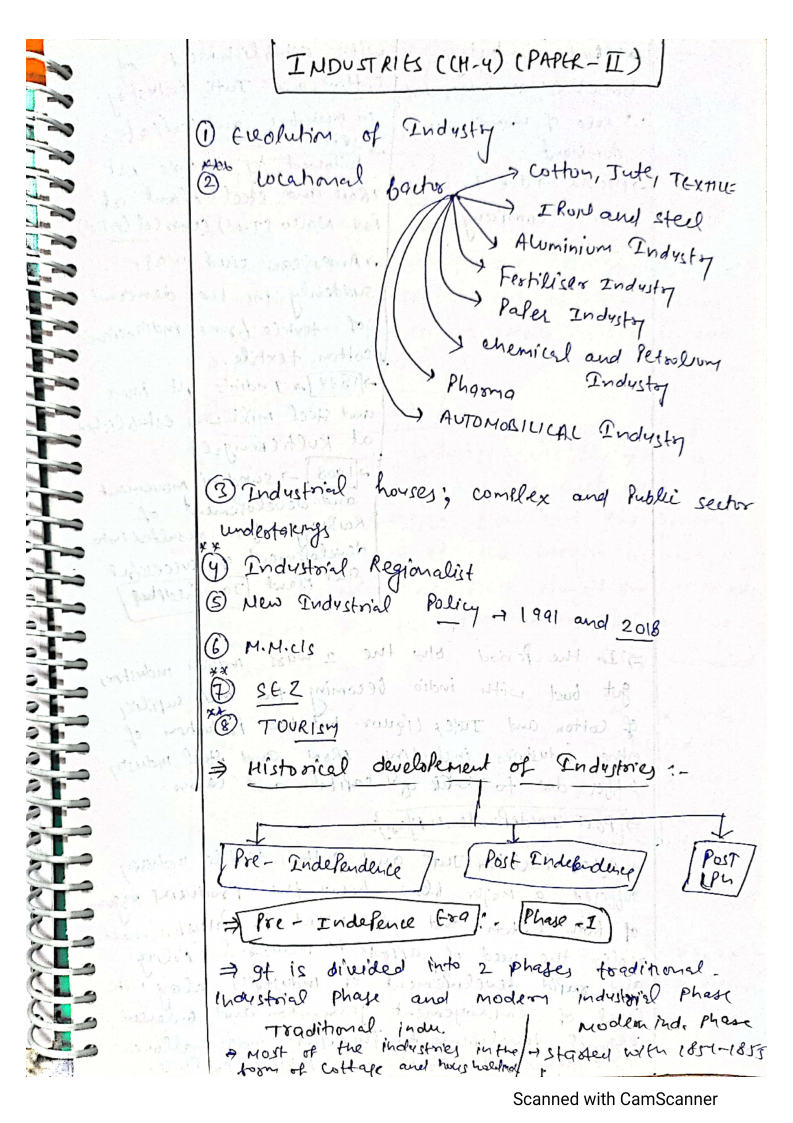 INDUSTRIES (CH-4) (PAPER-II)
① Evolution of Industry
② Locational factor
→ Cotton, Jute, TEXTILE
→ IRON and steel
→ Aluminium Industry
→ Fertiliser Industry
→ Paper Industry
→ chemical and Petroleum Industry
→ Pharma
→ AUTOMOBILICAL Industry
③ Industrial houses; complex and Public sector
undertakings
**
④ Industrial Regionalist
⑤ New Industrial Policy → 1991 and 2018
⑥ M.M.C/s
**
⑦ SEZ
**
⑧ TOURISM
⇒ Historical developement of Industries :-
Pre- Independence
Post Independence
POST LPG
⇒ Pre - Indepence Era :- Phase -I
⇒ It is divided into 2 phases traditional
industrial phase and modern industrial phase
Traditional indu.
→ Most of the industries in the
form of cottage and households
Modern ind. phase
→ started with 1854-1855
Scanned with CamScanner